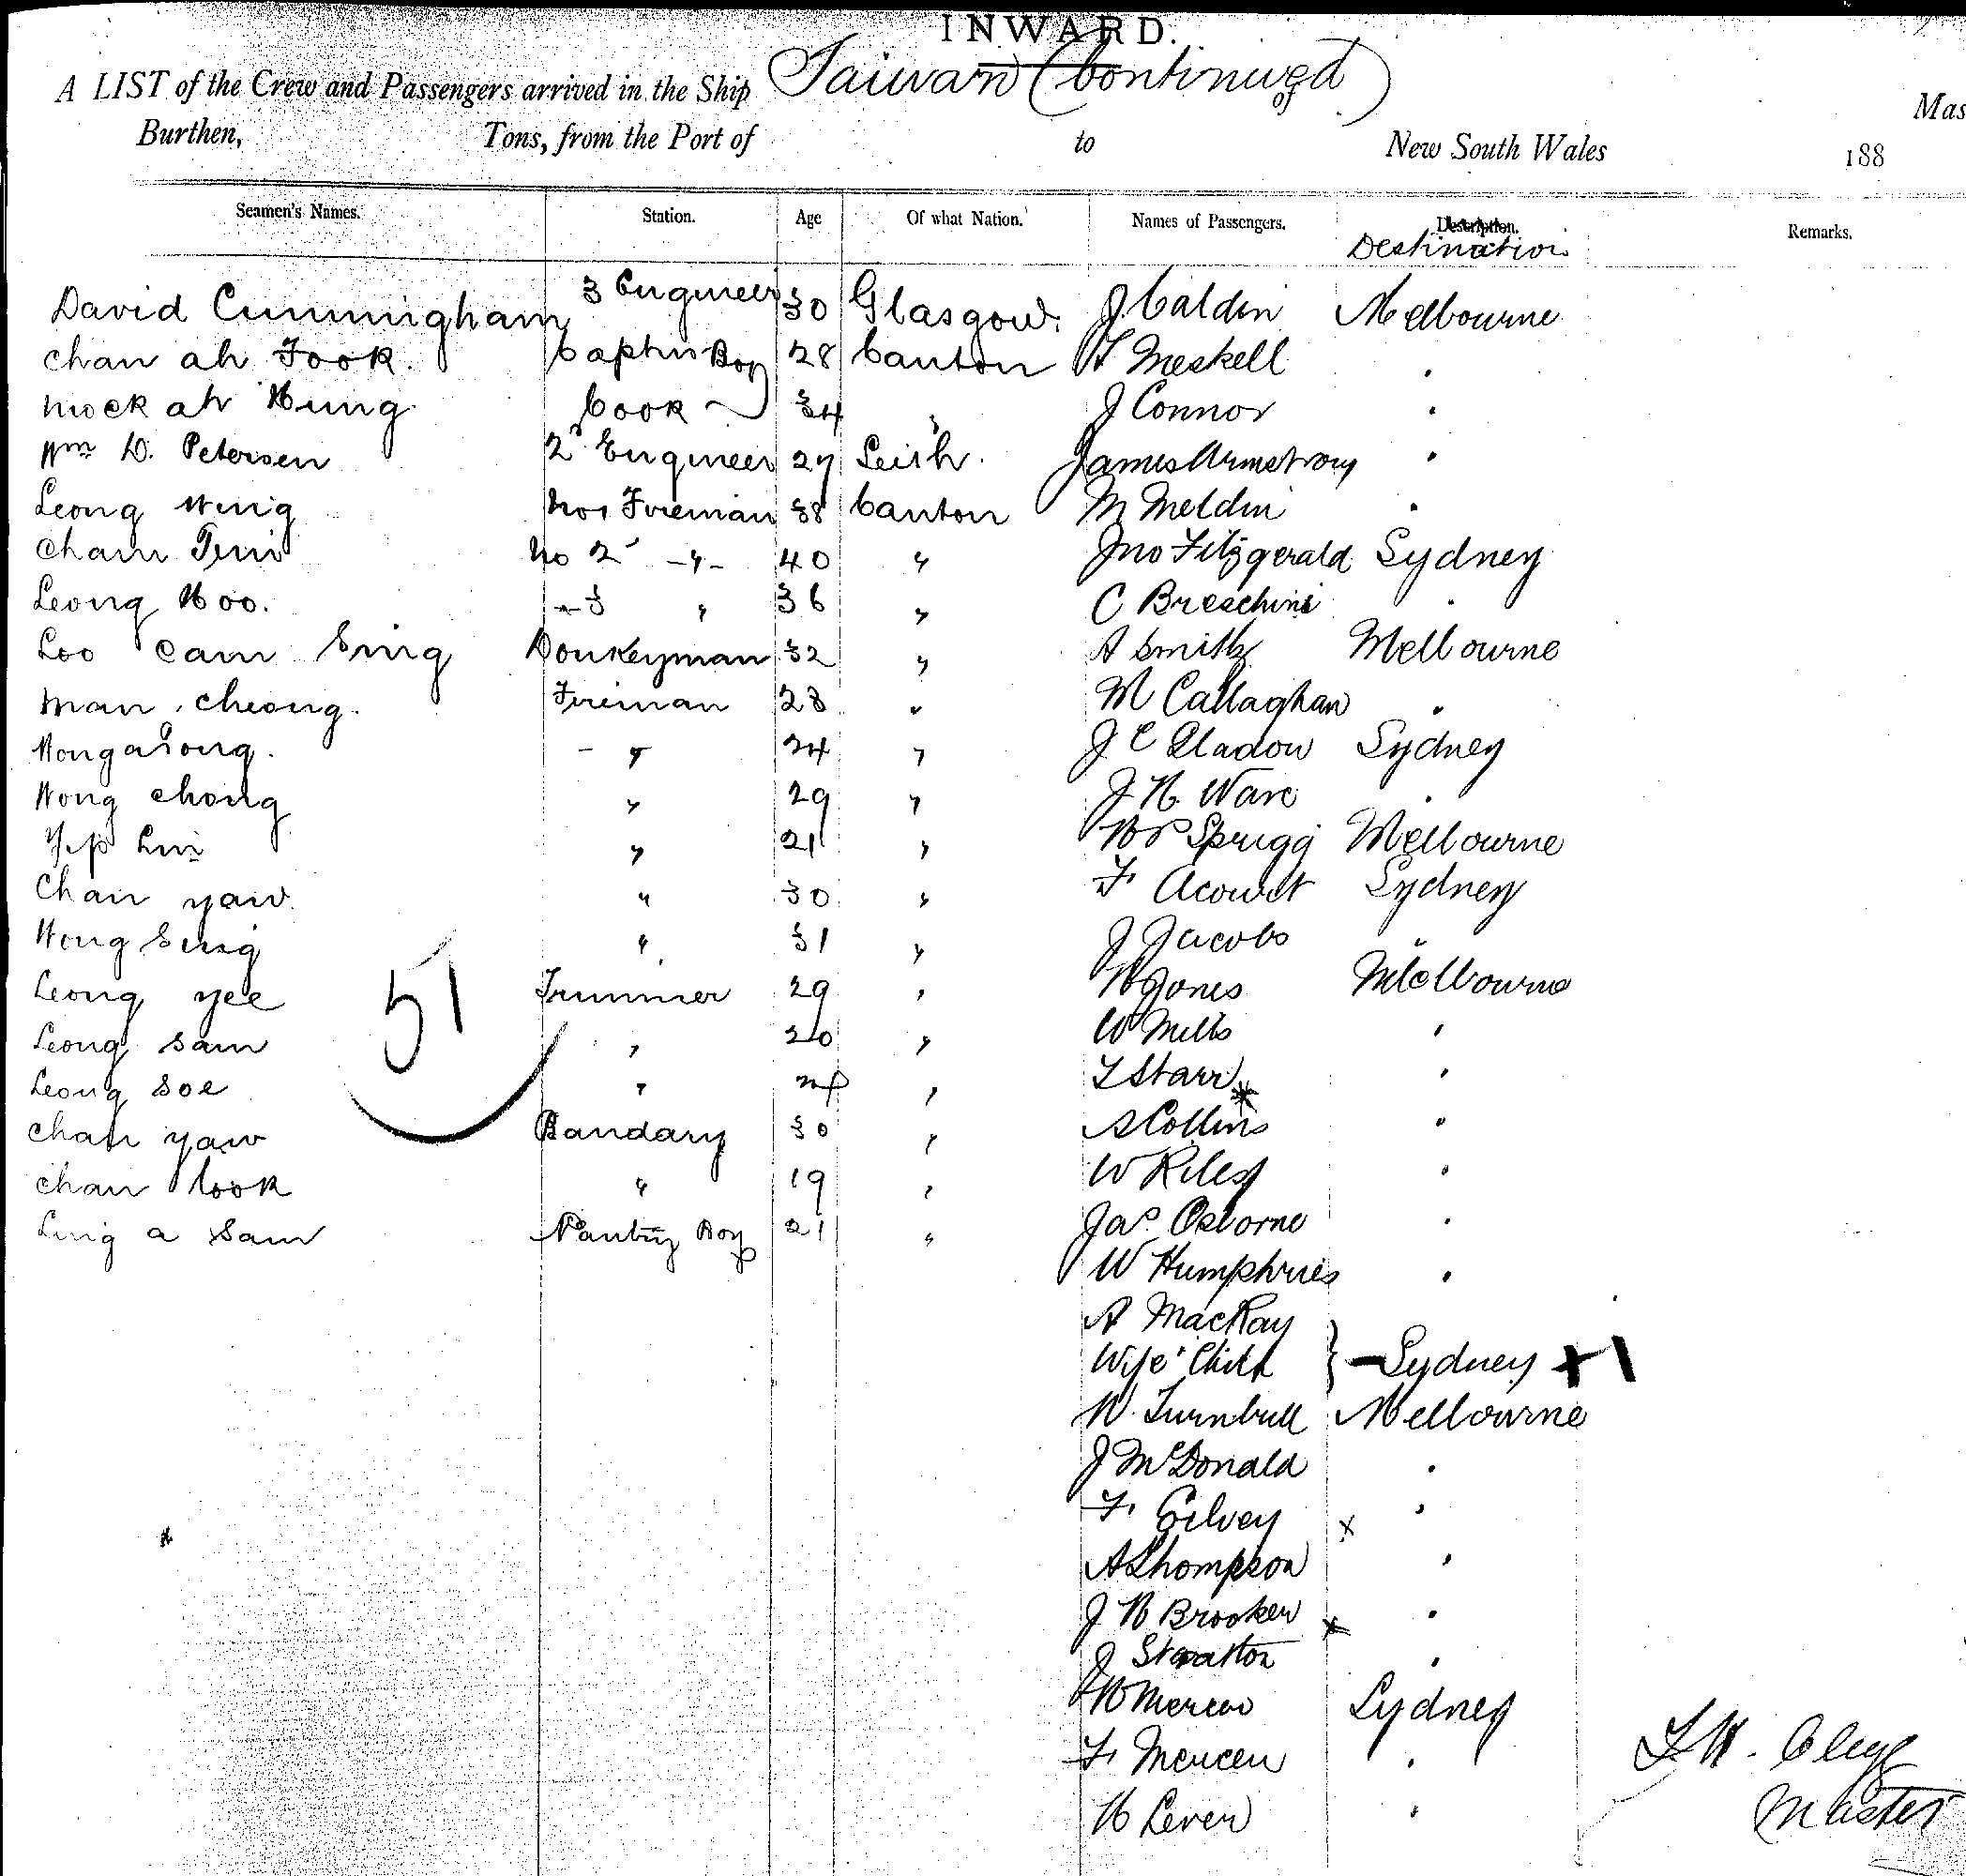 INWARD.
A LIST of the Crew and Passengers arrived in the Ship Taiwan (Continued) of Mas
Burthen, Tons, from the Port of to New South Wales 188
Seamen's Names. Station. Age Of what Nation. Names of Passengers. Description. Remarks.
Destination
David Cunningham 3 Engineer 30 Glasgow. J. Caldin Melbourne
Chan ah Fook. Captns Boy 28 Canton Meskell "
ah Hung Cook 34 " J Connor "
Wm D. Petersen 2d Engineer 27 Leith. James Armstrong "
Leong Wing No 1 Fireman 38 Canton M Meldin "
Cham No 2 -"- 40 " Jno Fitzgerald Sydney
Leong Hoo. " 3 " 36 " C Breschini "
Loo Cam Sing Donkeyman 32 " A Smith Melbourne
Man Cheong. Fireman 28 " M Callaghan "
Wong asong. - " 24 " J C Sladow Sydney
Wong Chong " 29 " J H Ware "
Yip Lin " 21 " Sprugg Melbourne
Chan yaw " 30 " F. Sydney
Wong Sing " 31 " J Jacobs "
Leong yee Trimmer 29 " H Jones Melbourne
51
Leong Sam " 20 " W Mills "
Leong Soe " " T Starr "
Chan yaw Bandary 30 " A Collins "
Chan look " 19 " W Riley "
Ling a Sam Pantry Boy 21 " Jas. Osborne "
W Humphries "
A MacKay
Wife & Child } - Sydney + 1
W. Turnbull Melbourne
J McDonald "
F. Gilvey x "
A Thompson "
J H Brooker x "
J Stratton "
H Mercer Sydney
F. Mercer "
H Lever "
Master